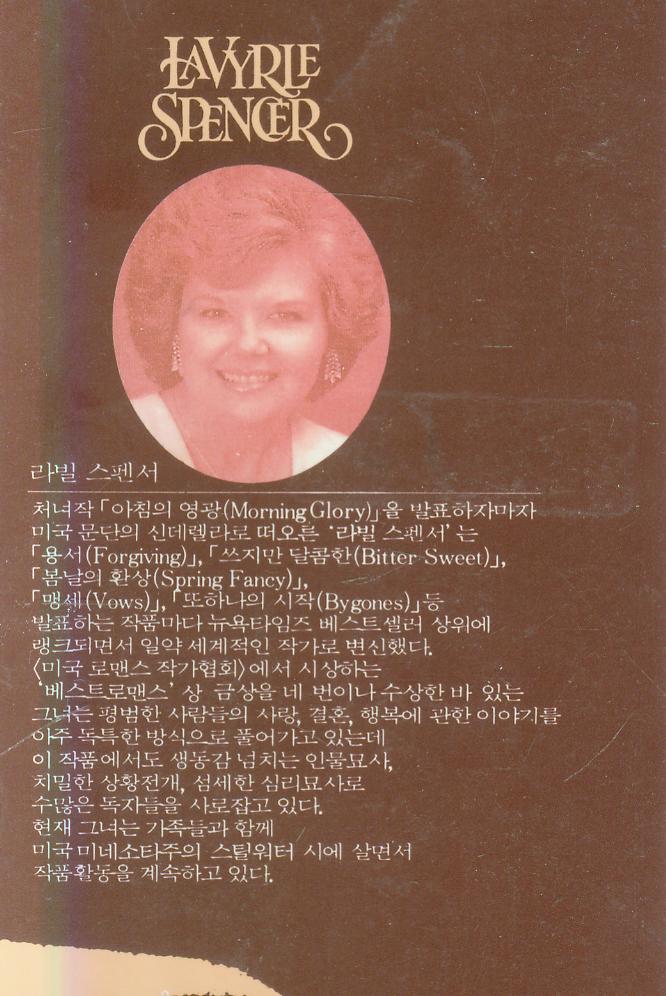 LAVYRLE
SPENCER
라빌 스펜서
처녀작 「아침의 영광(Morning Glory)」을 발표하자마자
미국 문단의 신데렐라로 떠오른 ‘라빌 스펜서’는
「용서(Forgiving)」, 「쓰지만 달콤한(Bitter Sweet)」,
「봄날의 환상(Spring Fancy)」,
「맹세(Vows)」, 「또하나의 시작(Bygones)」등
발표하는 작품마다 뉴욕타임즈 베스트셀러 상위에
랭크되면서 일약 세계적인 작가로 변신했다.
〈미국 로맨스 작가협회〉에서 시상하는
‘베스트로맨스’ 상 금상을 네 번이나 수상한 바 있는
그녀는 평범한 사람들의 사랑, 결혼, 행복에 관한 이야기를
아주 독특한 방식으로 풀어가고 있는데
이 작품에서도 생동감 넘치는 인물묘사,
치밀한 상황전개, 섬세한 심리묘사로
수많은 독자들을 사로잡고 있다.
현재 그녀는 가족들과 함께
미국 미네소타주의 스틸워터 시에 살면서
작품활동을 계속하고 있다.